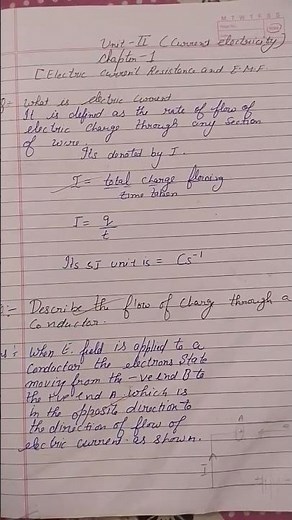 M T W T F S S
Unit-II (Current electricity)
Chapter-1
[Electric Current Resistance and E.M.F
What is electric current
It is defined as the rate of flow of
electric charge through any section
of wire.
Its denoted by I.
I = total charge flowing
time taken
I = q
t
Its SI unit is = Cs⁻¹
:- Describe the flow of charg through a
Conductor.
:- When E. field is applied to a
conductor the electrons State
moving from the -ve end B to
the +ve end A which is
in the opposite direction to
the direction of flow of
electric current as shown.
A
I